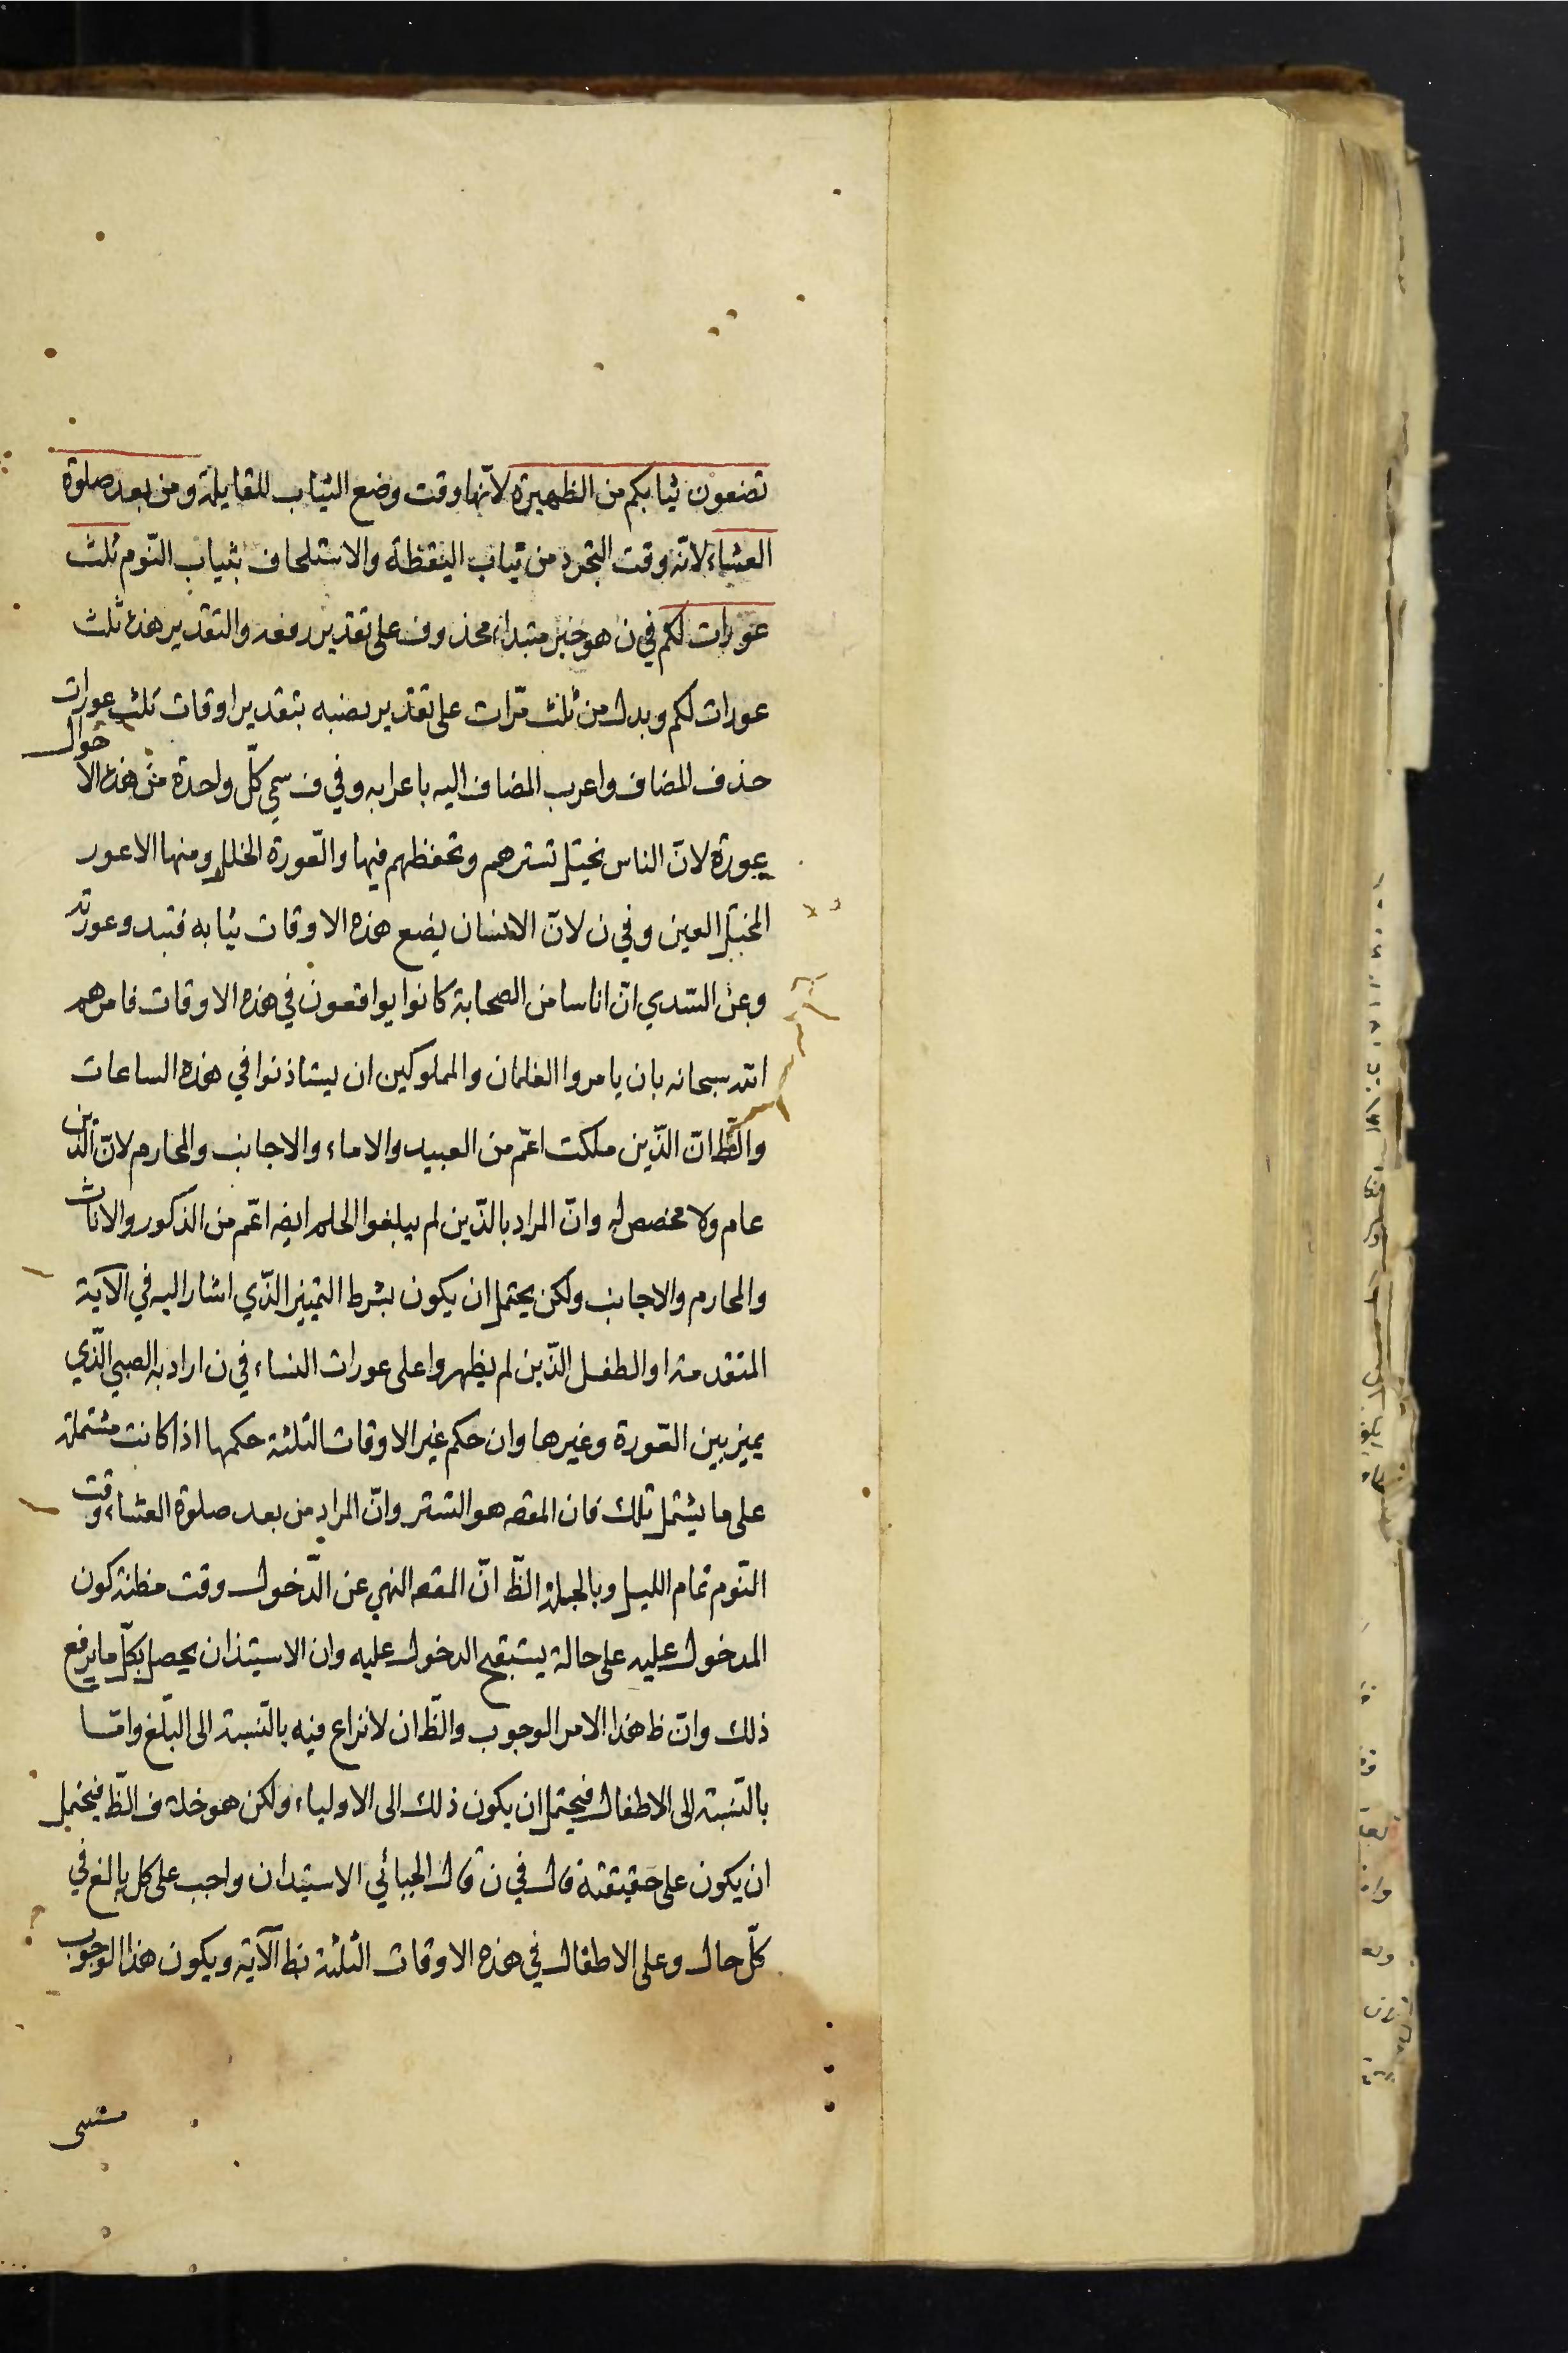 تضعون ثيابكم من الظهيرة لانّها وقت وضع الثياب للقايلة ومن بعد صلوة
العشاء لانّه وقت التجرد من ثياب اليقظة والاستلحاف بثياب النّوم ثلث
عورات لكم في ن هو خبر مبتداء محذوف على تقدير رفعه والتقدير هذه ثلث
عورات لكم وبدل من ثلث مرّات على تقدير نصبه بتقدير اوقات ثلث عورات
حذف المضاف واعرب المضاف اليه باعرابه وفي ف سمي كلّ واحدة من هذه الاحوال
عورة لانّ الناس يختل تسترهم وتحفظهم فيها والعورة الخلل ومنها الاعور
المختل العين وفي ن لانّ الانسان يضع هذه الاوقات ثيابه فتبدو عورته
وعن السّدي انّ اناسا من الصحابة كانوا يواقعون في هذه الاوقات فامرهم
الله سبحانه بان يامروا الغلمان والمملوكين ان يستاذنوا في هذه الساعات
والظّ انّ الّذين ملكت اعمّ من العبيد والاماء والاجانب والمحارم لانّ الّذين
عام ولا مخصص له وانّ المراد بالّذين لم يبلغوا الحلم ايضه اعمّ من الذكور والاناث
والمحارم والاجانب ولكن يحتمل ان يكون بشرط التميز الّذي اشار اليه في الآية
المتقدمة او الطفل الّذين لم يظهروا على عورات النساء في ن اراد به الصبي الّذي
يميز بين العورة وغيرها وان حكم غير الاوقات الثلثة حكمها اذا كانت مشتملة
على ما يشتمل تلك فان المقصه هو التستر وانّ المراد من بعد صلوة العشاء وقت
النّوم تمام الليل وبالجملة الظّ انّ المقصه النهي عن الدّخول وقت مظنة كون
المدخول عليه على حالة يستقبح الدخول عليه وان الاستيذان يحصل بكلّ ما يرفع
ذلك وانّ ظ هذا الامر الوجوب والظّ ان لا نزاع فيه بالنّسبة الى البلّغ وامّا
بالنّسبة الى الاطفال فيحتمل ان يكون ذلك الى الاولياء ولكن هو خلاف الظّ فيحتمل
ان يكون على حقيقته قال في ن قال الجبائي الاستيدان واجب على كل بالغ في
كلّ حال وعلى الاطفال في هذه الاوقات الثلثة بظ الآية ويكون هذا الوجوب